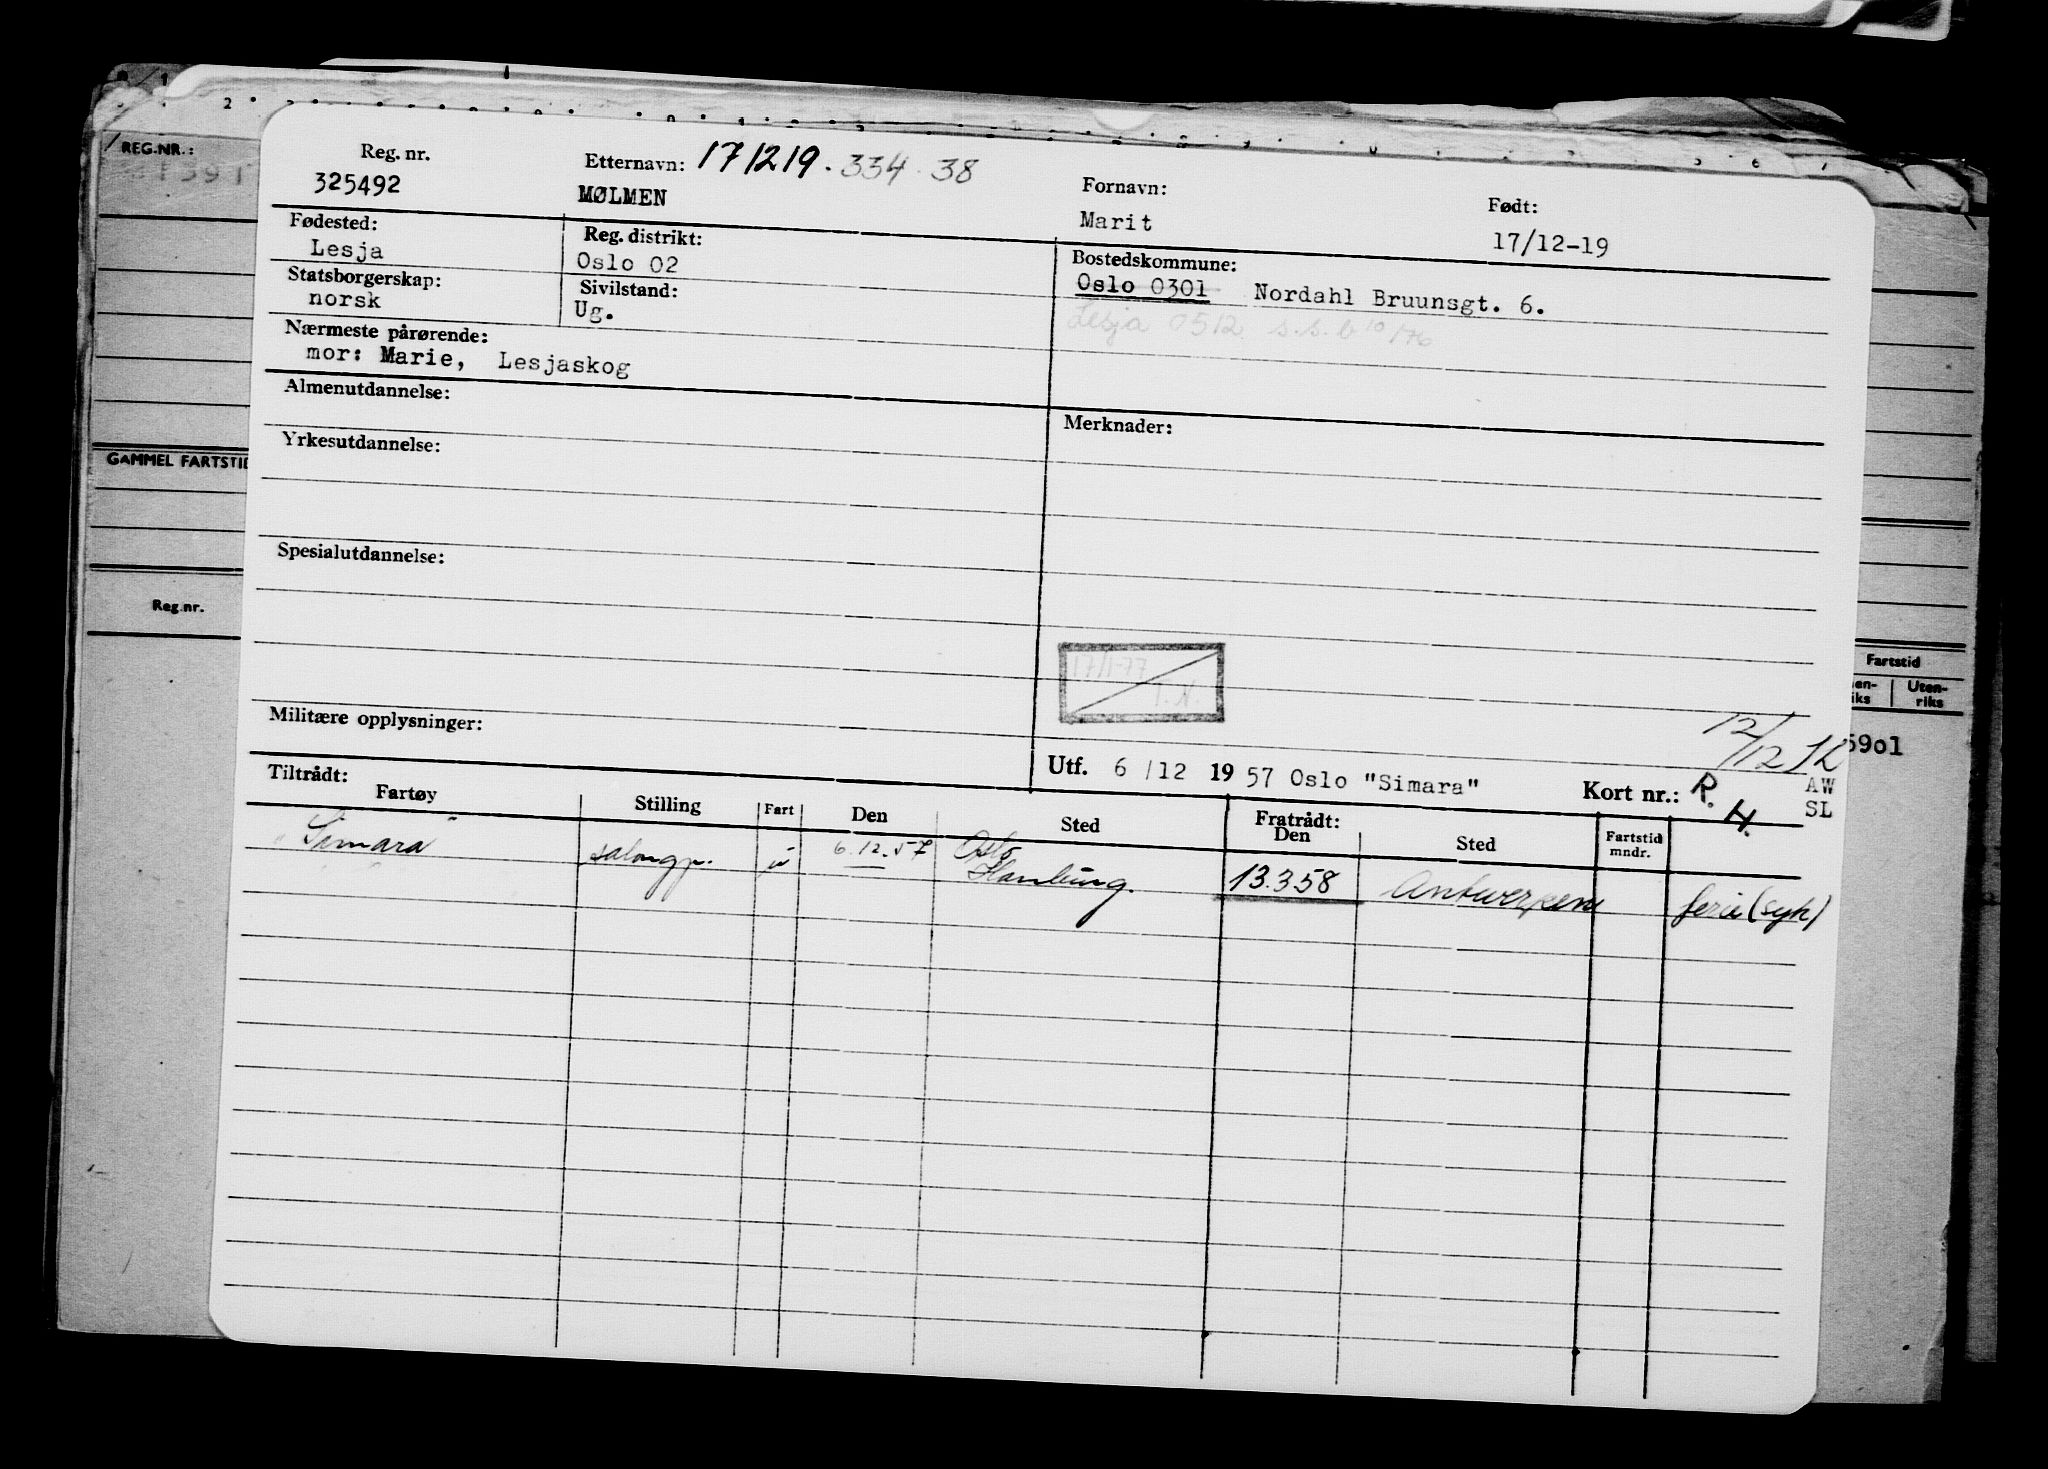 REG.NR.:
GAMMEL FARTSTID
Reg.nr.
Reg. nr.
325492
Etternavn: 171219. 334 38
MØLMEN
Fornavn:
Marit
Født:
17/12-19
Fødested:
Lesja
Reg. distrikt:
Oslo 02
Bostedskommune:
Oslo 0301 Nordahl Bruunsgt. 6.
Lesja 0512 s.s.b 10/76
Statsborgerskap:
norsk
Sivilstand:
Ug.
Nærmeste pårørende:
mor: Marie, Lesjaskog
Almenutdannelse:
Merknader:
Yrkesutdannelse:
Spesialutdannelse:
17/1-77
T.N.
Militære opplysninger:
12/12
Utf. 6 / 12 19 57 Oslo "Simara"
Kort nr.: R. H.
AW
SL
Tiltrådt:
Fartøy Stilling Fart Den Sted Fratrådt: Den Sted Fartstid mndr.
"Simara" salongp. u 6.12.57 Oslo
Hamburg. 13.3.58 Antwerpen ferie (syk)
Fartstid
Uten-
riks
59o1